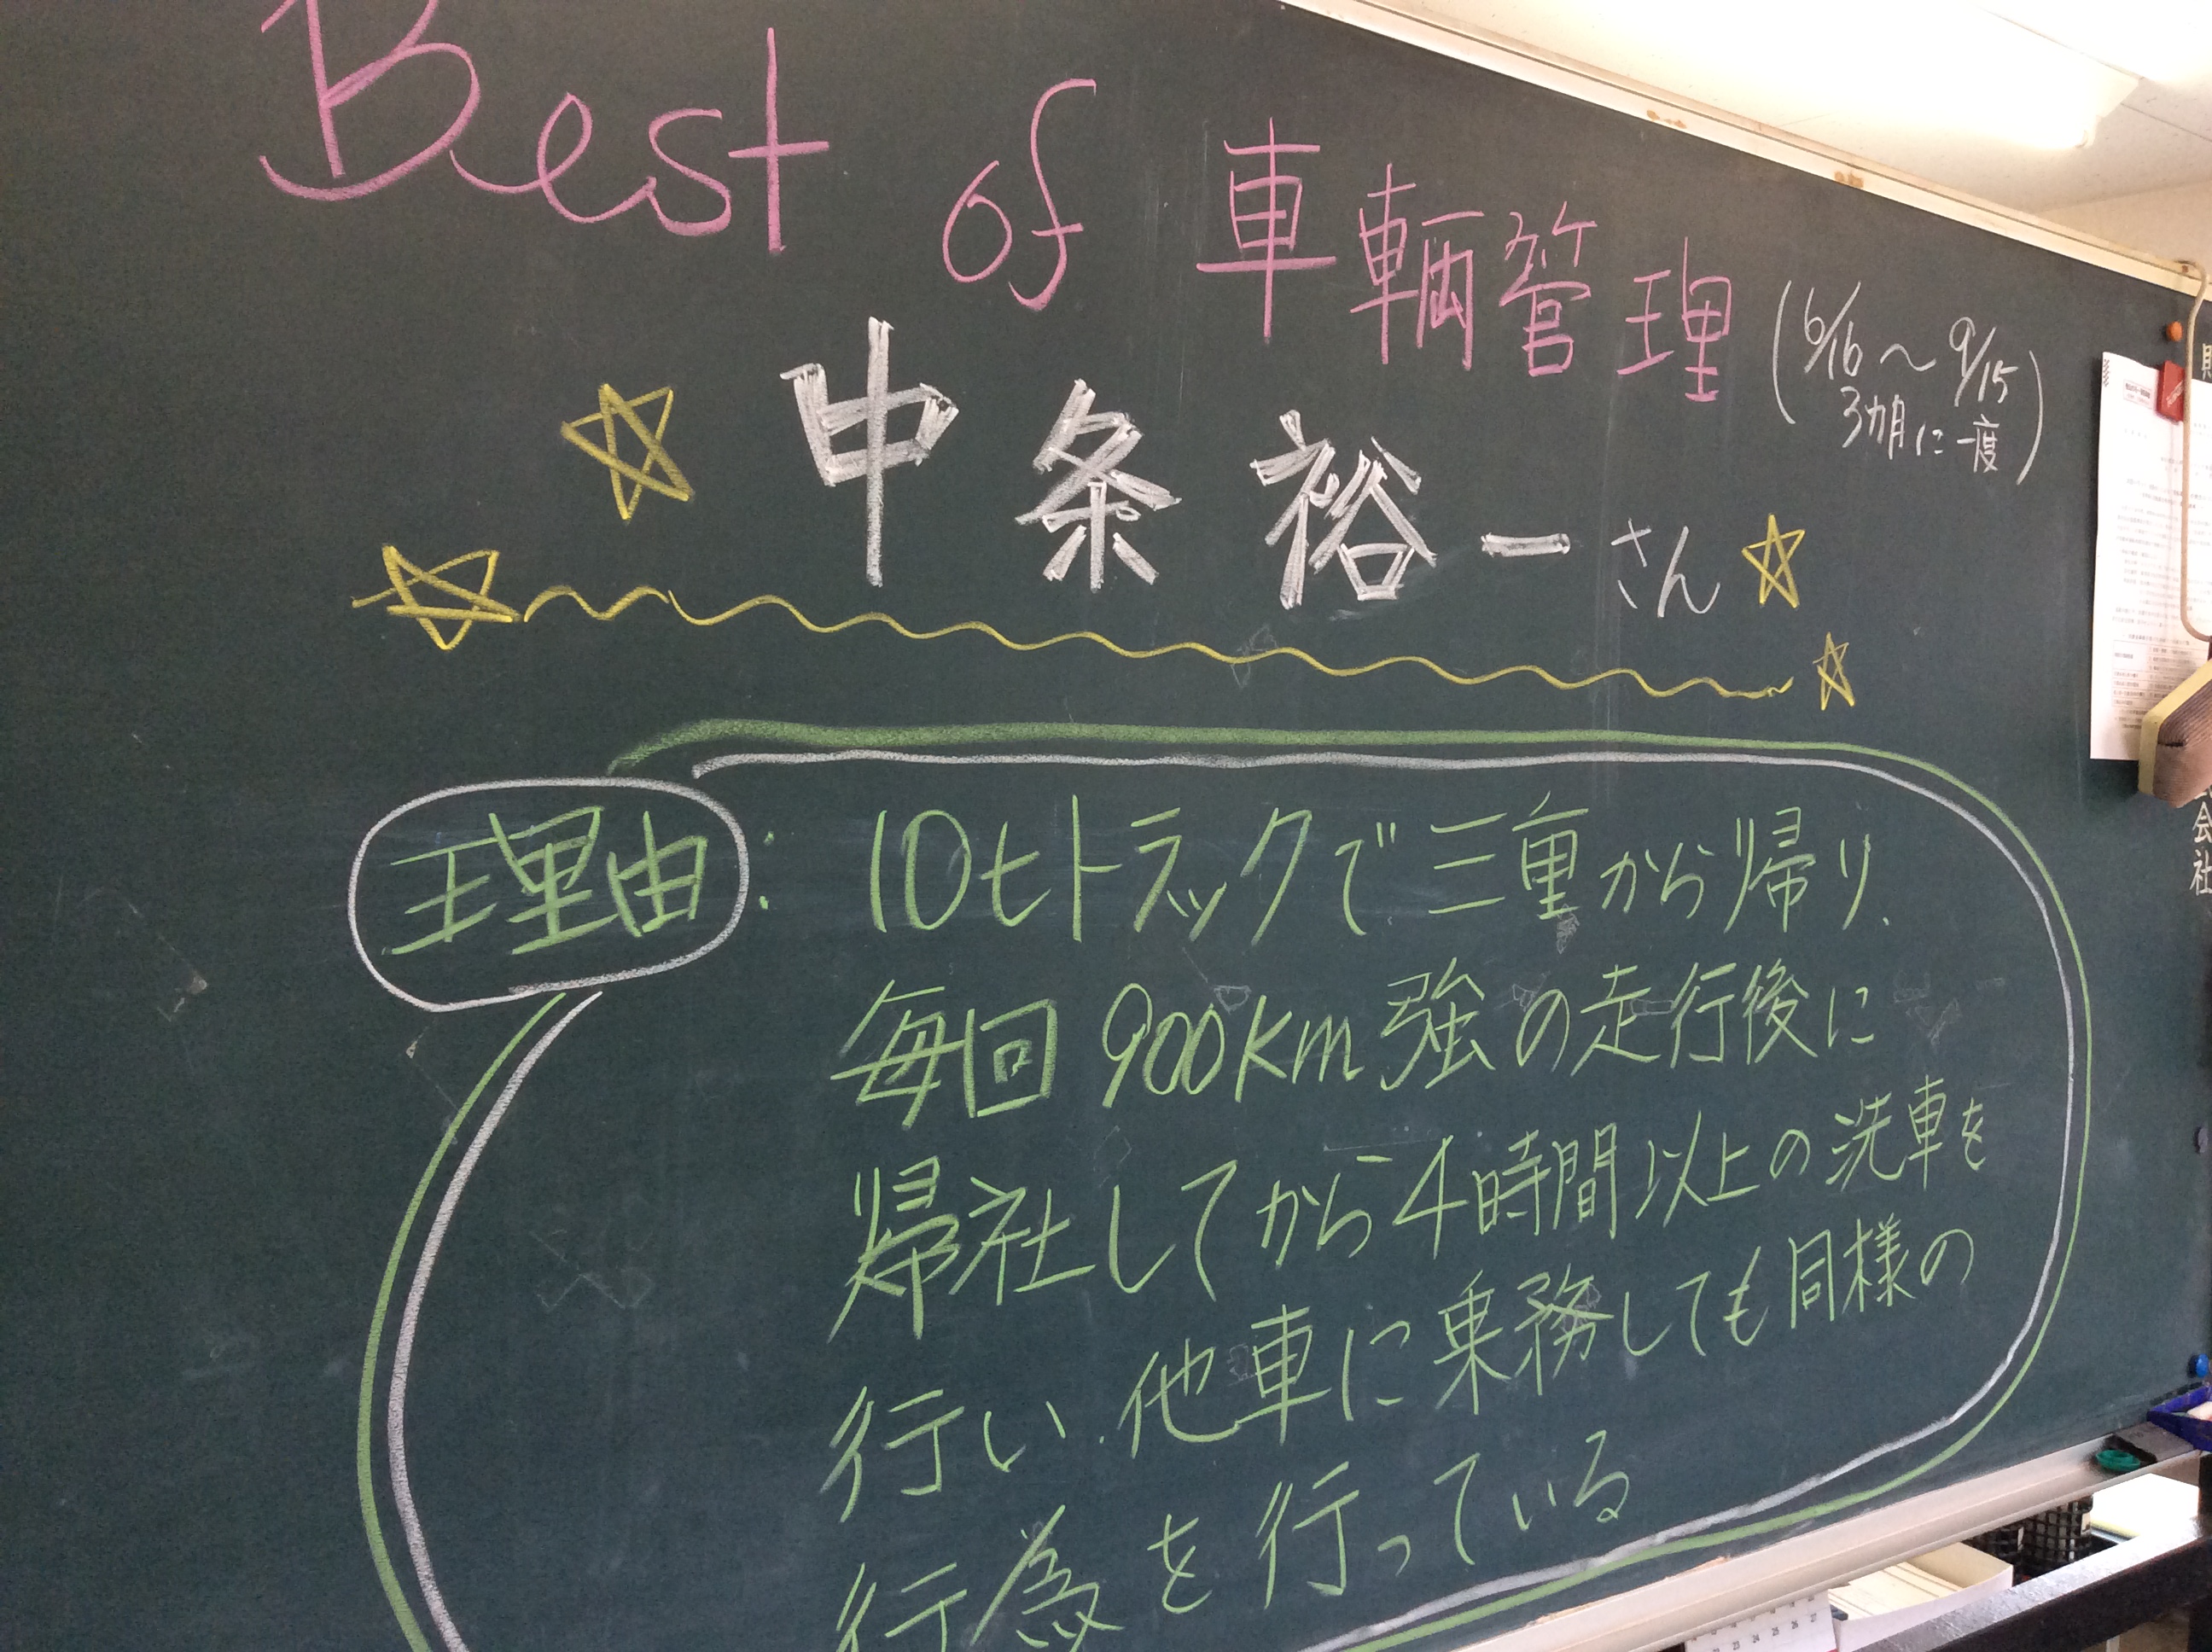 Best of 車輌管理
(6/16～9/15
3カ月に一度)
中条裕一さん
理由：10tトラックで三重から帰り、
毎回900km強の走行後に
帰社してから4時間以上の洗車を
行い、他車に乗務しても同様の
行為を行っている
会社